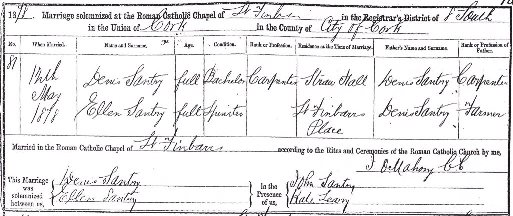 1898 Marriage solemnized at the Roman Catholic Chapel of St Finbars in the Registrar's District of South
in the Union of Cork in the County of City of Cork
No. When Married. Name and Surname. Age. Condition. Rank or Profession. Residence at the Time of Marriage. Father's Name and Surname. Rank or Profession of Father.
81 Denis Santry full Bachelor Carpenter Straw Hall Denis Santry Carpenter
May
1898 Ellen Santry full Spinster St Finbarrs Place Denis Santry Farmer
Married in the Roman Catholic Chapel of St Finbarrs according to the Rites and Ceremonies of the Roman Catholic Church by me,
J DeMahony CC
This Marriage was solemnized between us, Denis Santry Ellen Santry In the Presence of us, John Santry Kate Leary